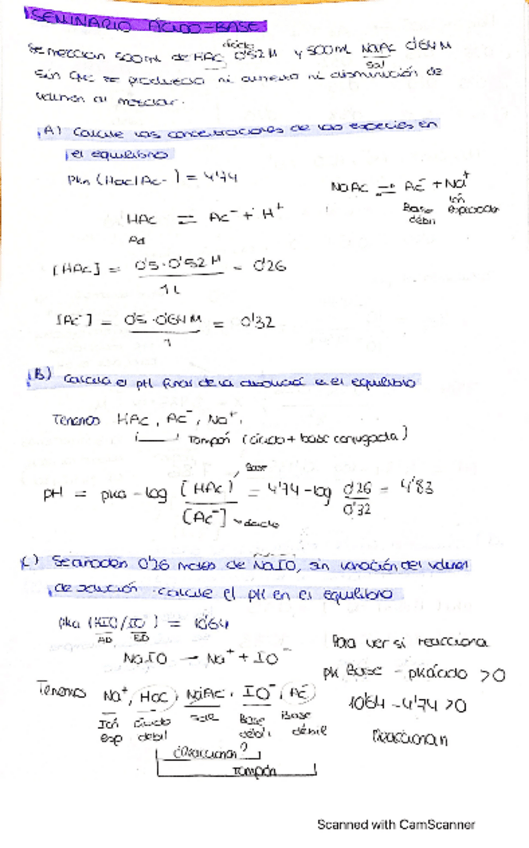 SEMINARIO ÁCIDO-BASE
Se mezclan 500ml de HAc 0'52 M y 500ml NaAc 0'64 M
ácido
sal
sin que se produzca ni aumento ni disminución de
volumen al mezclar.
A) Calcule las concentraciones de las especies en
el equilibrio
pKa (HAc/Ac-) = 4'74
NaAc ⇌ Ac- + Na+
Base débil
ión espectador
HAc = Ac- + H+
[HAc] = 0'5·0'52 M / 1L = 0'26
[Ac-] = 0'5·0'64 M / 1 = 0'32
B) Calcula el pH final de la disolución en el equilibrio
Tenemos HAc, Ac-, Na+.
Tampón (ácido + base conjugada)
Base
pH = pka - log [HAc] / [Ac-] = 4'74 - log 0'26 / 0'32 = 4'83
ácido
C) Se añaden 0'26 moles de NaIO, sin variación del volumen
de solución calcule el pH en el equilibrio
pka (HIO/IO-) = 10'64
AD BD
Para ver si reacciona
NaIO → Na+ + IO-
pk Base - pkácido > 0
Tenemos Na+, HAc, NaAc, IO-, Ac-
10'64 - 4'74 > 0
Ión esp
ácido débil
sal
Base débil
Base débil
Reaccionan
¿Reaccionan?
Tampón
Scanned with CamScanner